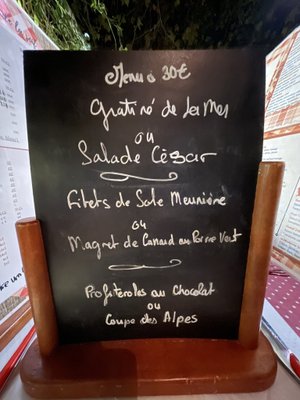 Menu à 30€
Gratiné de la Mer
ou
Salade César
Filets de Sole Meunière
ou
Magret de Canard au Poivre Vert
Profiteroles au Chocolat
ou
Coupe des Alpes